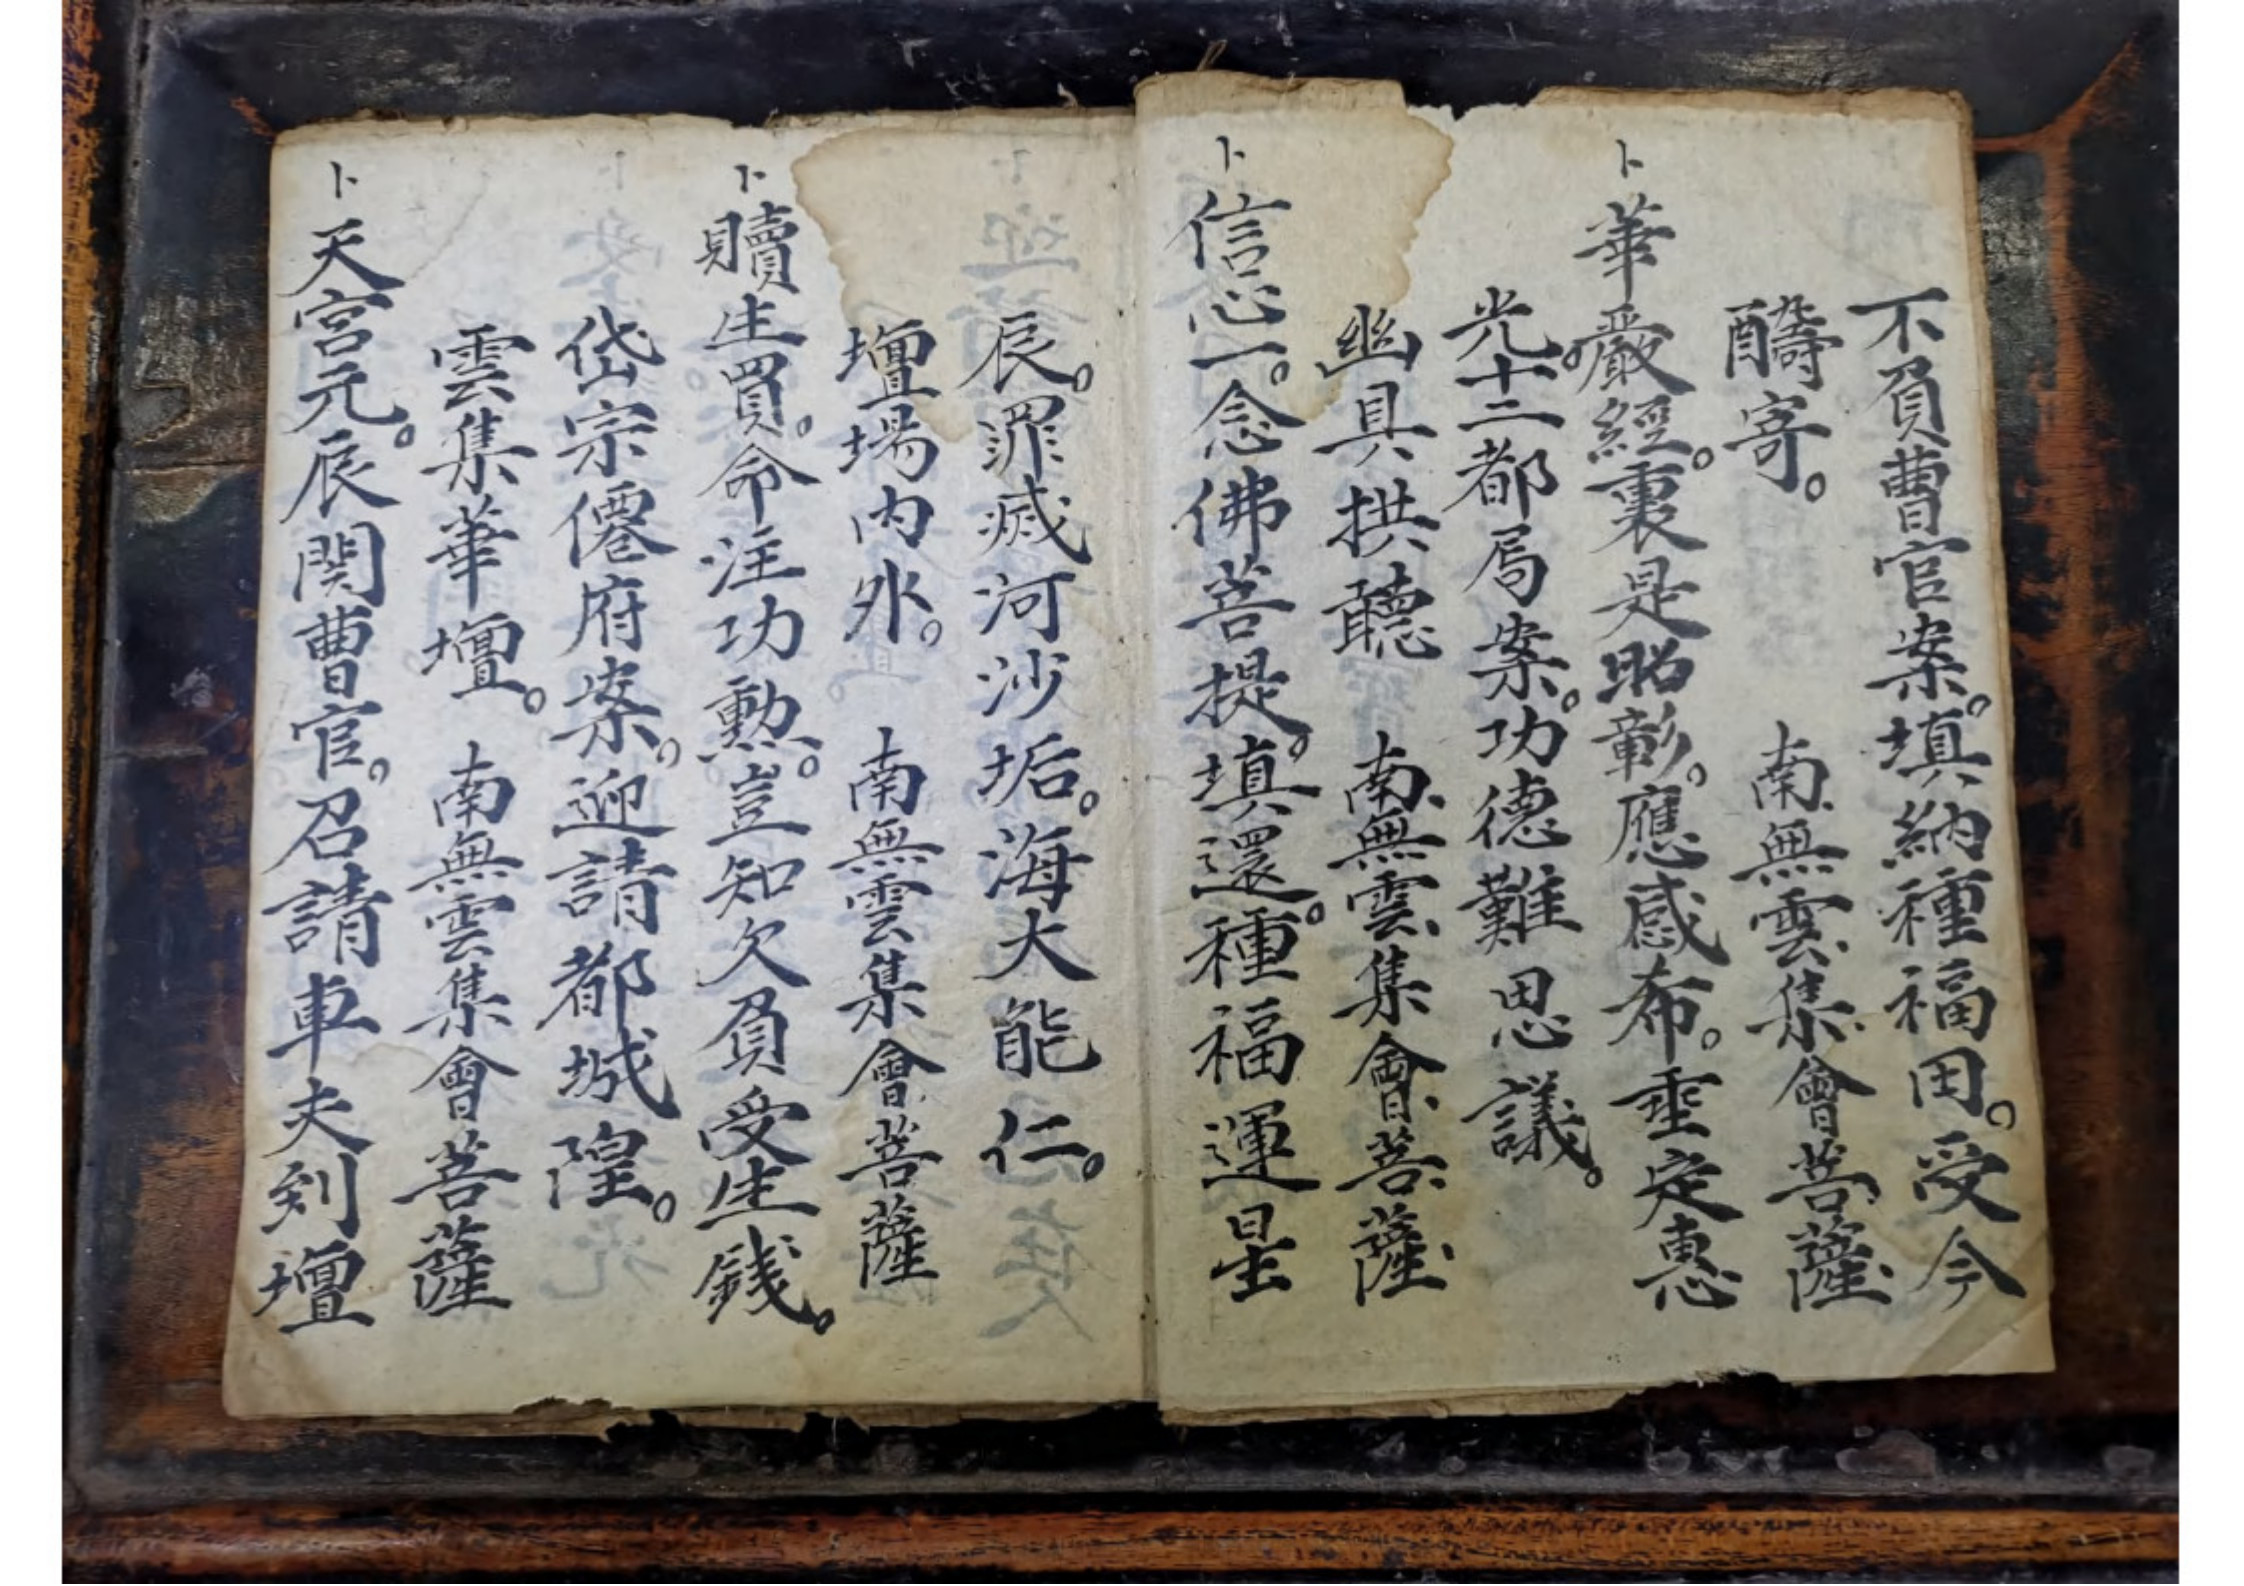 不負曹官案。填納種福田。受今
醻寄。 南無雲集會菩薩
卜華嚴經。裏是昭彰。應感布。聖定惠
光。十二都局案。功德難思議。
幽具拱聽 南無雲集會菩薩
卜信心一。念佛菩提。填還。種福運星
辰。罪滅河沙垢。海大能仁。
壇場内外。 南無雲集會菩薩
卜贖生買。命注功勲。豈知欠負受生錢。
岱宗僊府案。迎請都城隍。
雲集華壇。 南無雲集會菩薩
卜天宮元。辰関曹官。召請車夫到壇